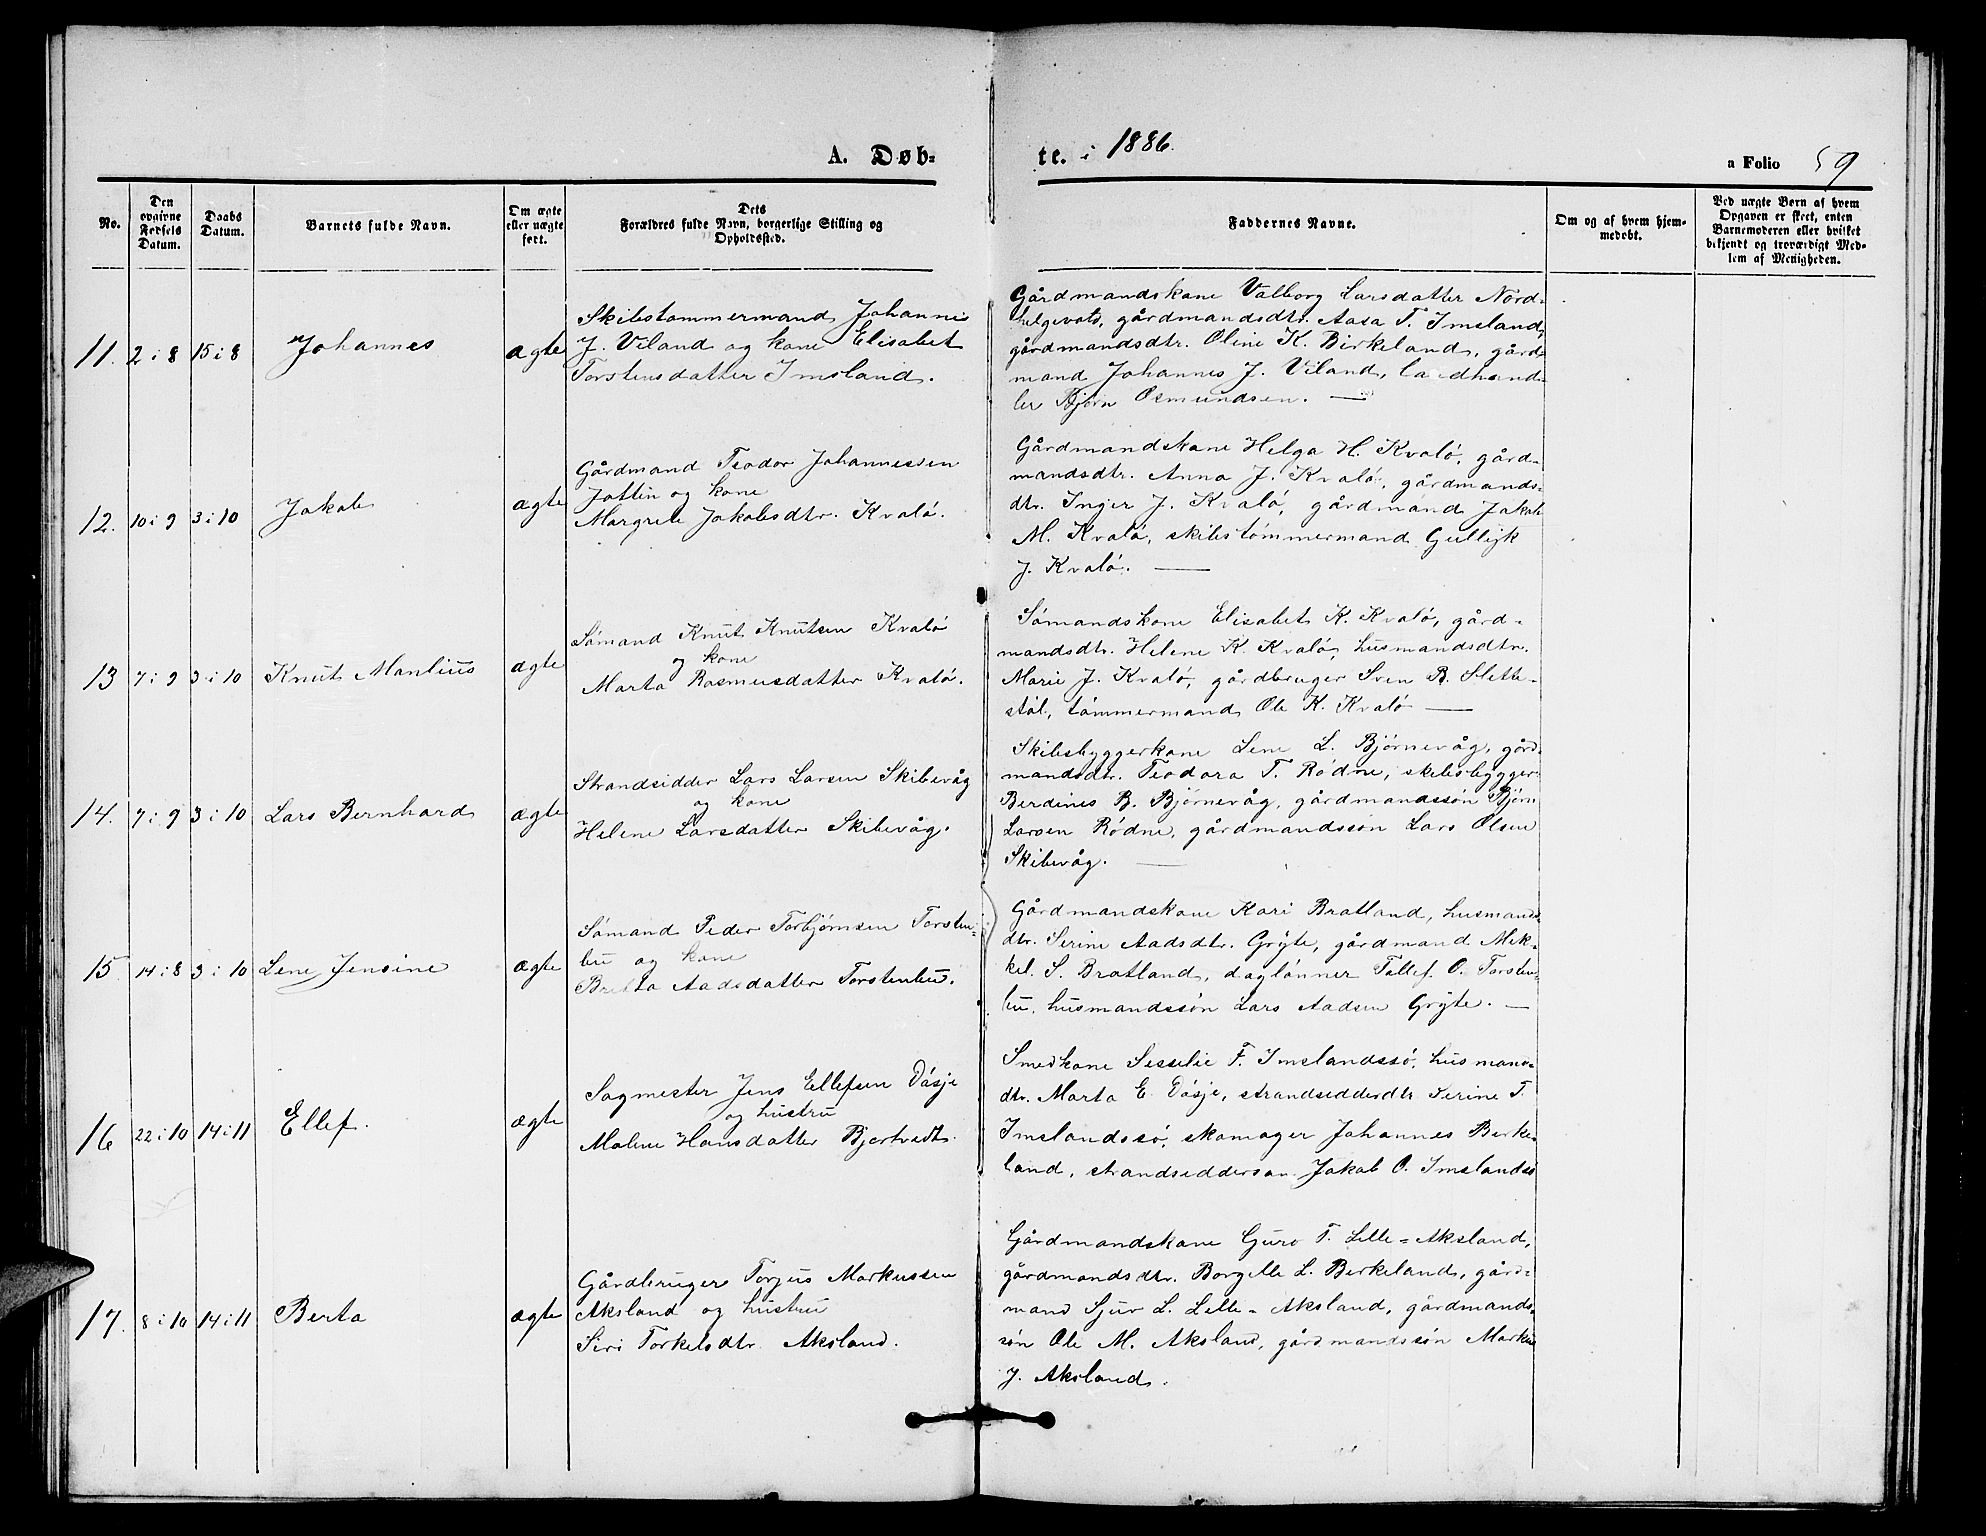 A. Døb-
te. i 1886.
a Folio 59
No.
Den opgivne Fødsels Datum.
Daabs Datum.
Barnets fulde Navn.
Om ægte eller uægte født.
Dets Forældres fulde Navn, borgerlige Stilling og Opholdssted.
Faddernes Navne.
Om og af hvem hjemmedøbt.
Ved uægte Børn af hvem Opgaven er skeet, enten Barnemoderen eller hvilket bekjendt og troværdigt Medlem af Menigheden.
11. 2 i 8 15 i 8 Johannes ægte
Skibstømmermand Johannes
J. Viland og kone Elisabet
Torstensdatter Imsland.
Gårdmandskone Valborg Larsdatter Nord-
helgevold, gårdmandsdtr. Aasa T. Imsland,
gårdmandsdtr. Oline K. Birkeland, gård-
mand Johannes J. Viland, landhand-
ler Bjørn Osmundsen. —
12. 10 i 9 3 i 10 Jakob ægte
Gårdmand Teodor Johannessen
Jattin og kone
Margrete Jakobsdtr. Kvalö.
Gårdmandskone Helga H. Kvalö, gård-
mandsdtr. Anna J. Kvalö, gårdmands-
dtr. Inger J. Kvalö, gårdmand Jakob
M. Kvalö, skibstömmermand Gullejk
J. Kvalö. —
13 7 i 9 3 i 10 Knut Manlius ægte
Sömand Knut Knutsen Kvalö
og kone
Marta Rasmusdatter Kvalö.
Sömandskone Elisabet K. Kvalö, gård-
mandsdtr. Helene K. Kvalö, husmandsdtr.
Marie J. Kvalö, gårdbruger Sven B. Slette-
stöl, tömmermand Ole K. Kvalö —
14. 7 i 9 3 i 10 Lars Bernhard ægte
Strandsidder Lars Larsen Skibevåg
og kone
Helene Larsdatter Skibevåg.
Skibsbyggerkone Lene L. Björnevåg, gård-
mandsdtr. Teodora T. Rödne, skibsbygger
Berdines B. Björnevåg, gårdmandssön Björn
Larsen Rödne, gårdmandssön Lars Olsen
Skibevåg. —
15 14 i 8 3 i 10 Lene Jensine ægte
Sömand Peder Torbjörnsen Torsten-
bu og kone
Brita Aadsdatter Torstenbu.
Gårdmandskone Kari Bratland, husmands-
dtr. Serine Aadsdtr. Gryte, gårdmand Mik-
kel S. Bratland, daglönner Tollef O. Torsten-
bu, husmandssön Lars Aadsen Gryte. —
16 22 i 10 14 i 11 Ellef. ægte
Sagmester Jens Ellefsen Dösje
og hustru
Malene Hansdatter Bjertvedt.
Smedkone Sesselie F. Imslandssö, husmans-
dtr. Marta E. Dösje, strandsidderdtr Serine T.
Imslandssö, skomager Johannes Birke-
land, strandsiddersön Jakob O. Imslandssö
17. 8 i 10 14 i 11 Berta ægte
Gårdbruger Torjus Markussen
Aksland og hustru
Siri Torkelsdtr. Aksland.
Gårdmandskone Guro T. Lille-Aksland,
gårdmandsdtr. Borgille L. Birkeland, gård-
mand Sjur L. Lille-Aksland, gårdmands-
sön Ole M. Aksland, gårdmandssön Markus
J. Aksland.